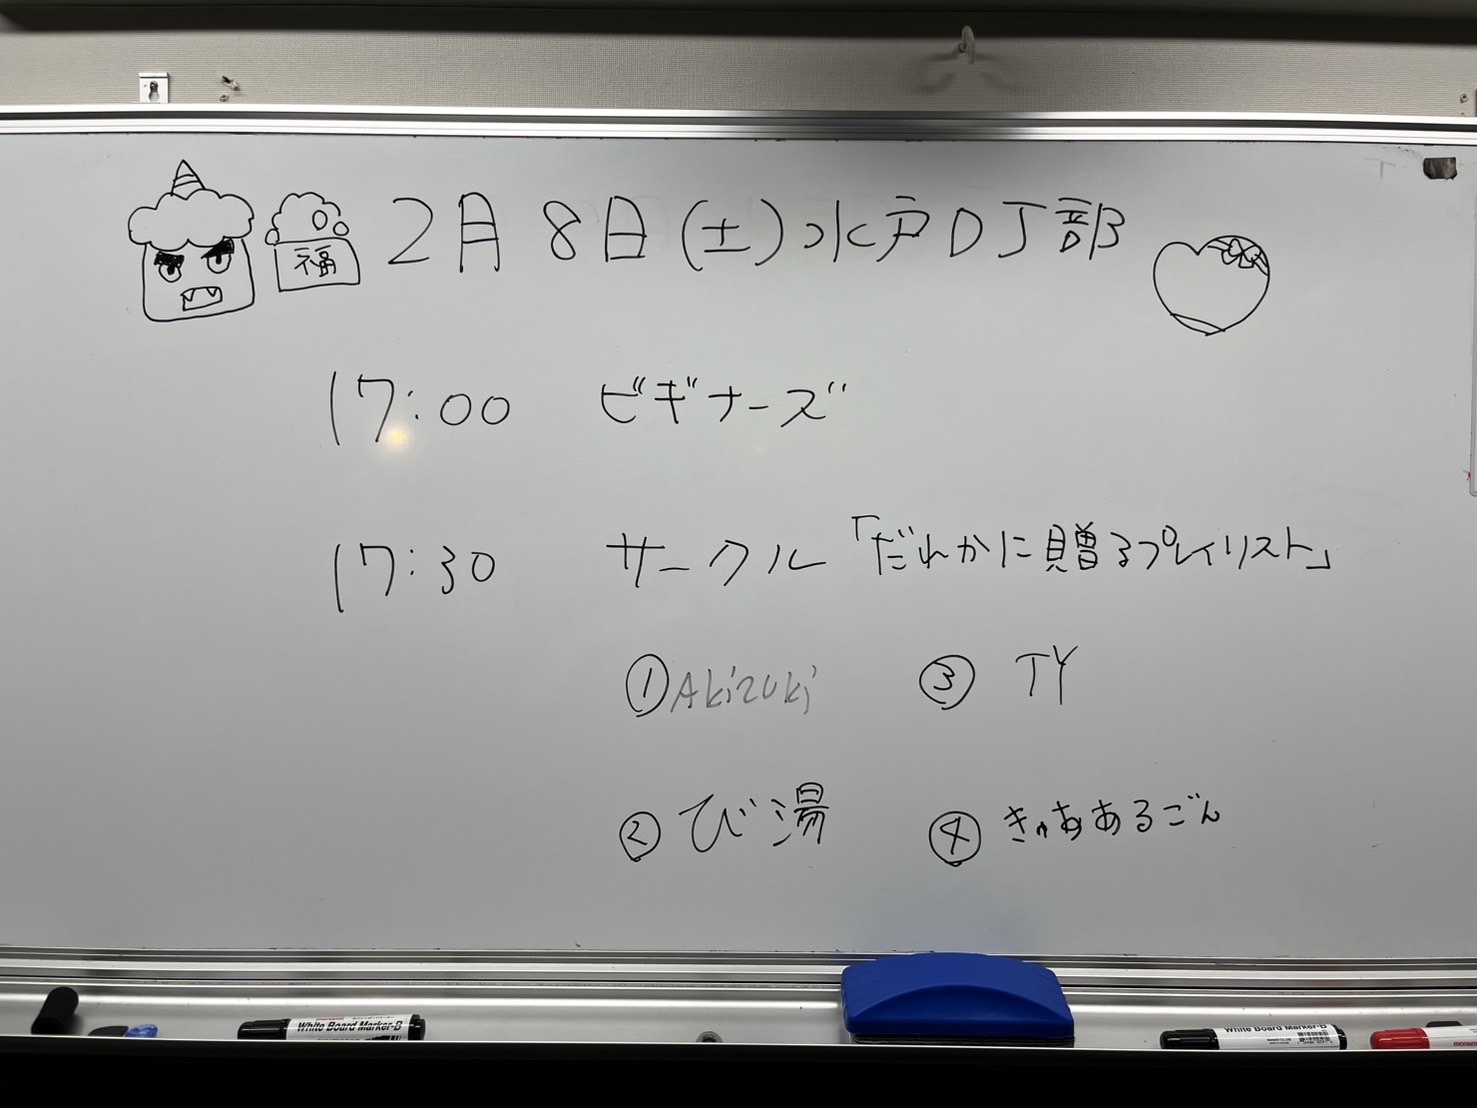 福 2月8日(土)水戸DJ部
17:00 ビギナーズ
17:30 サークル「だれかに贈るプレイリスト」
①Akizuki ③ TY
②び湯 ④きゅああるごん
White Board Marker-B
White Board Marker-B